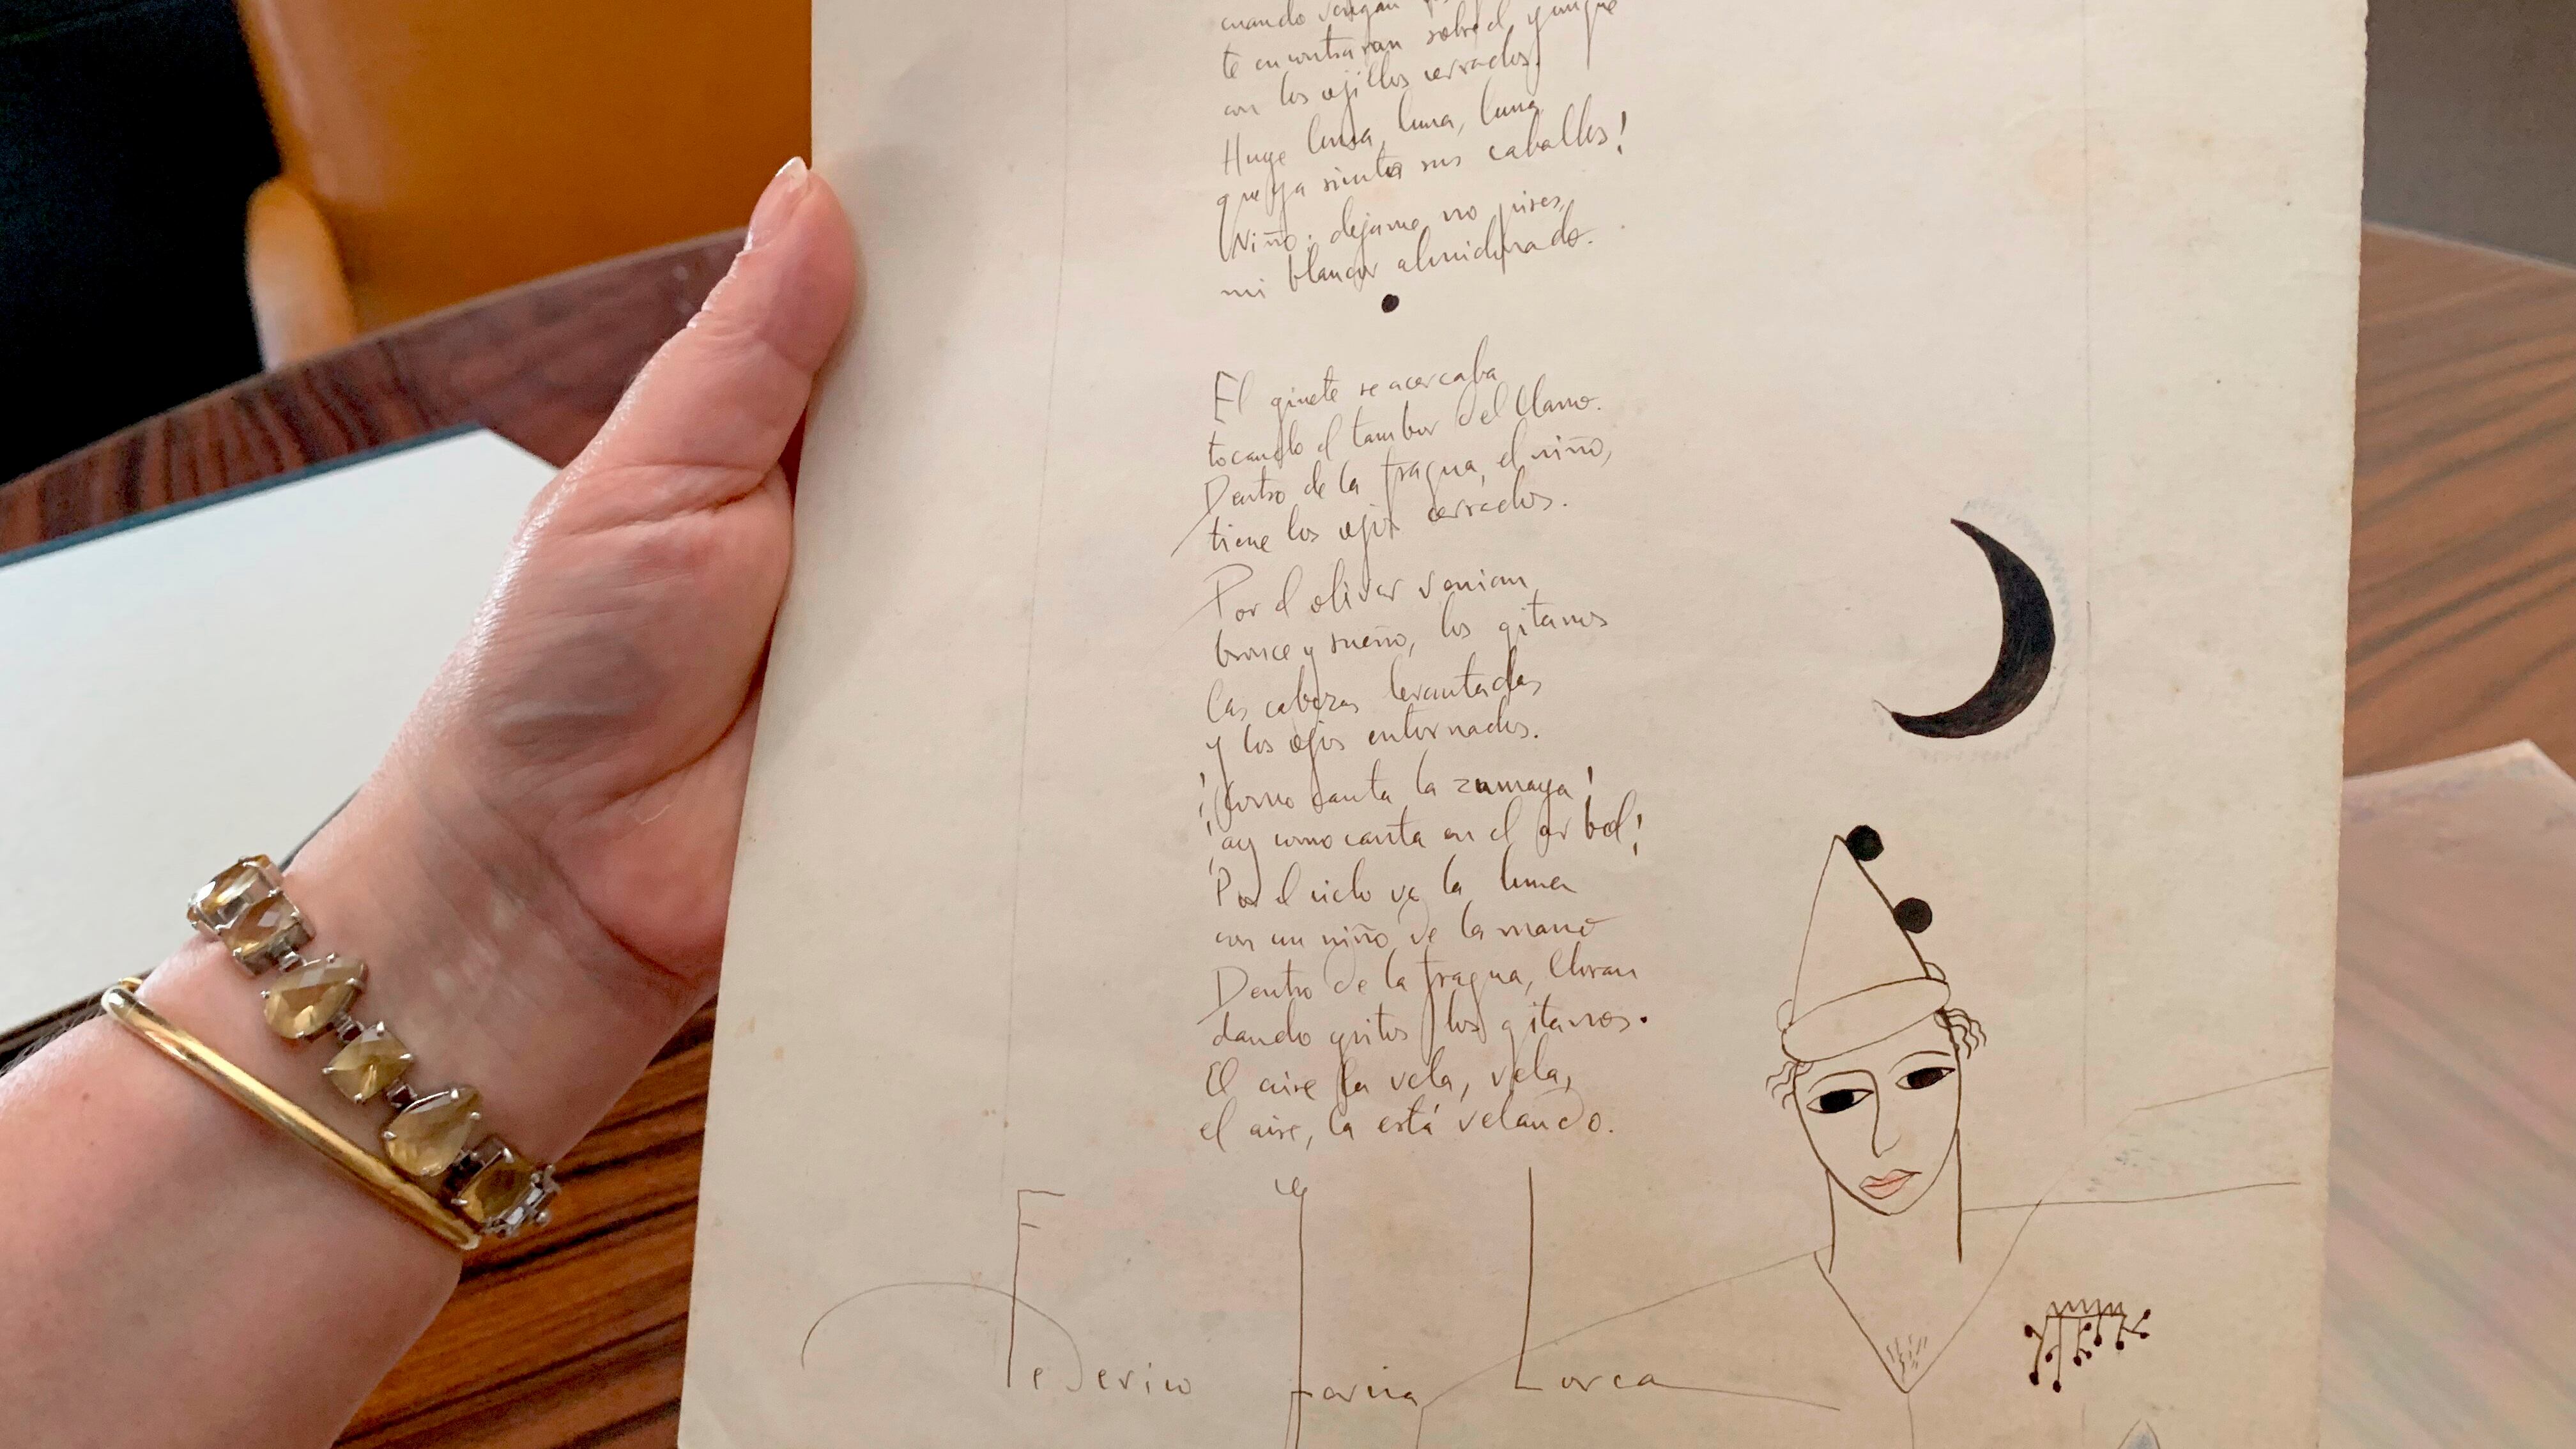 cuando vengan
te encontraran sobre el yunque
con los ojillos cerrados.
Huye luna, luna, luna
que ya siento sus caballos!
Niño: dejame no pises,
mi blancor almidonado.
El ginete se acercaba
tocando el tambor del llano.
Dentro de la fragua, el niño,
tiene los ojos cerrados.
Por el olivar venian
bronce y sueño, los gitanos
las cabezas levantadas
y los ojos entornados.
¡Como canta la zumaya!
¡ay como canta en el arbol!
Por el cielo va la luna
con un niño de la mano
Dentro de la fragua, lloran
dando gritos los gitanos.
El aire la vela, vela,
el aire, la está velando.
Federico García Lorca